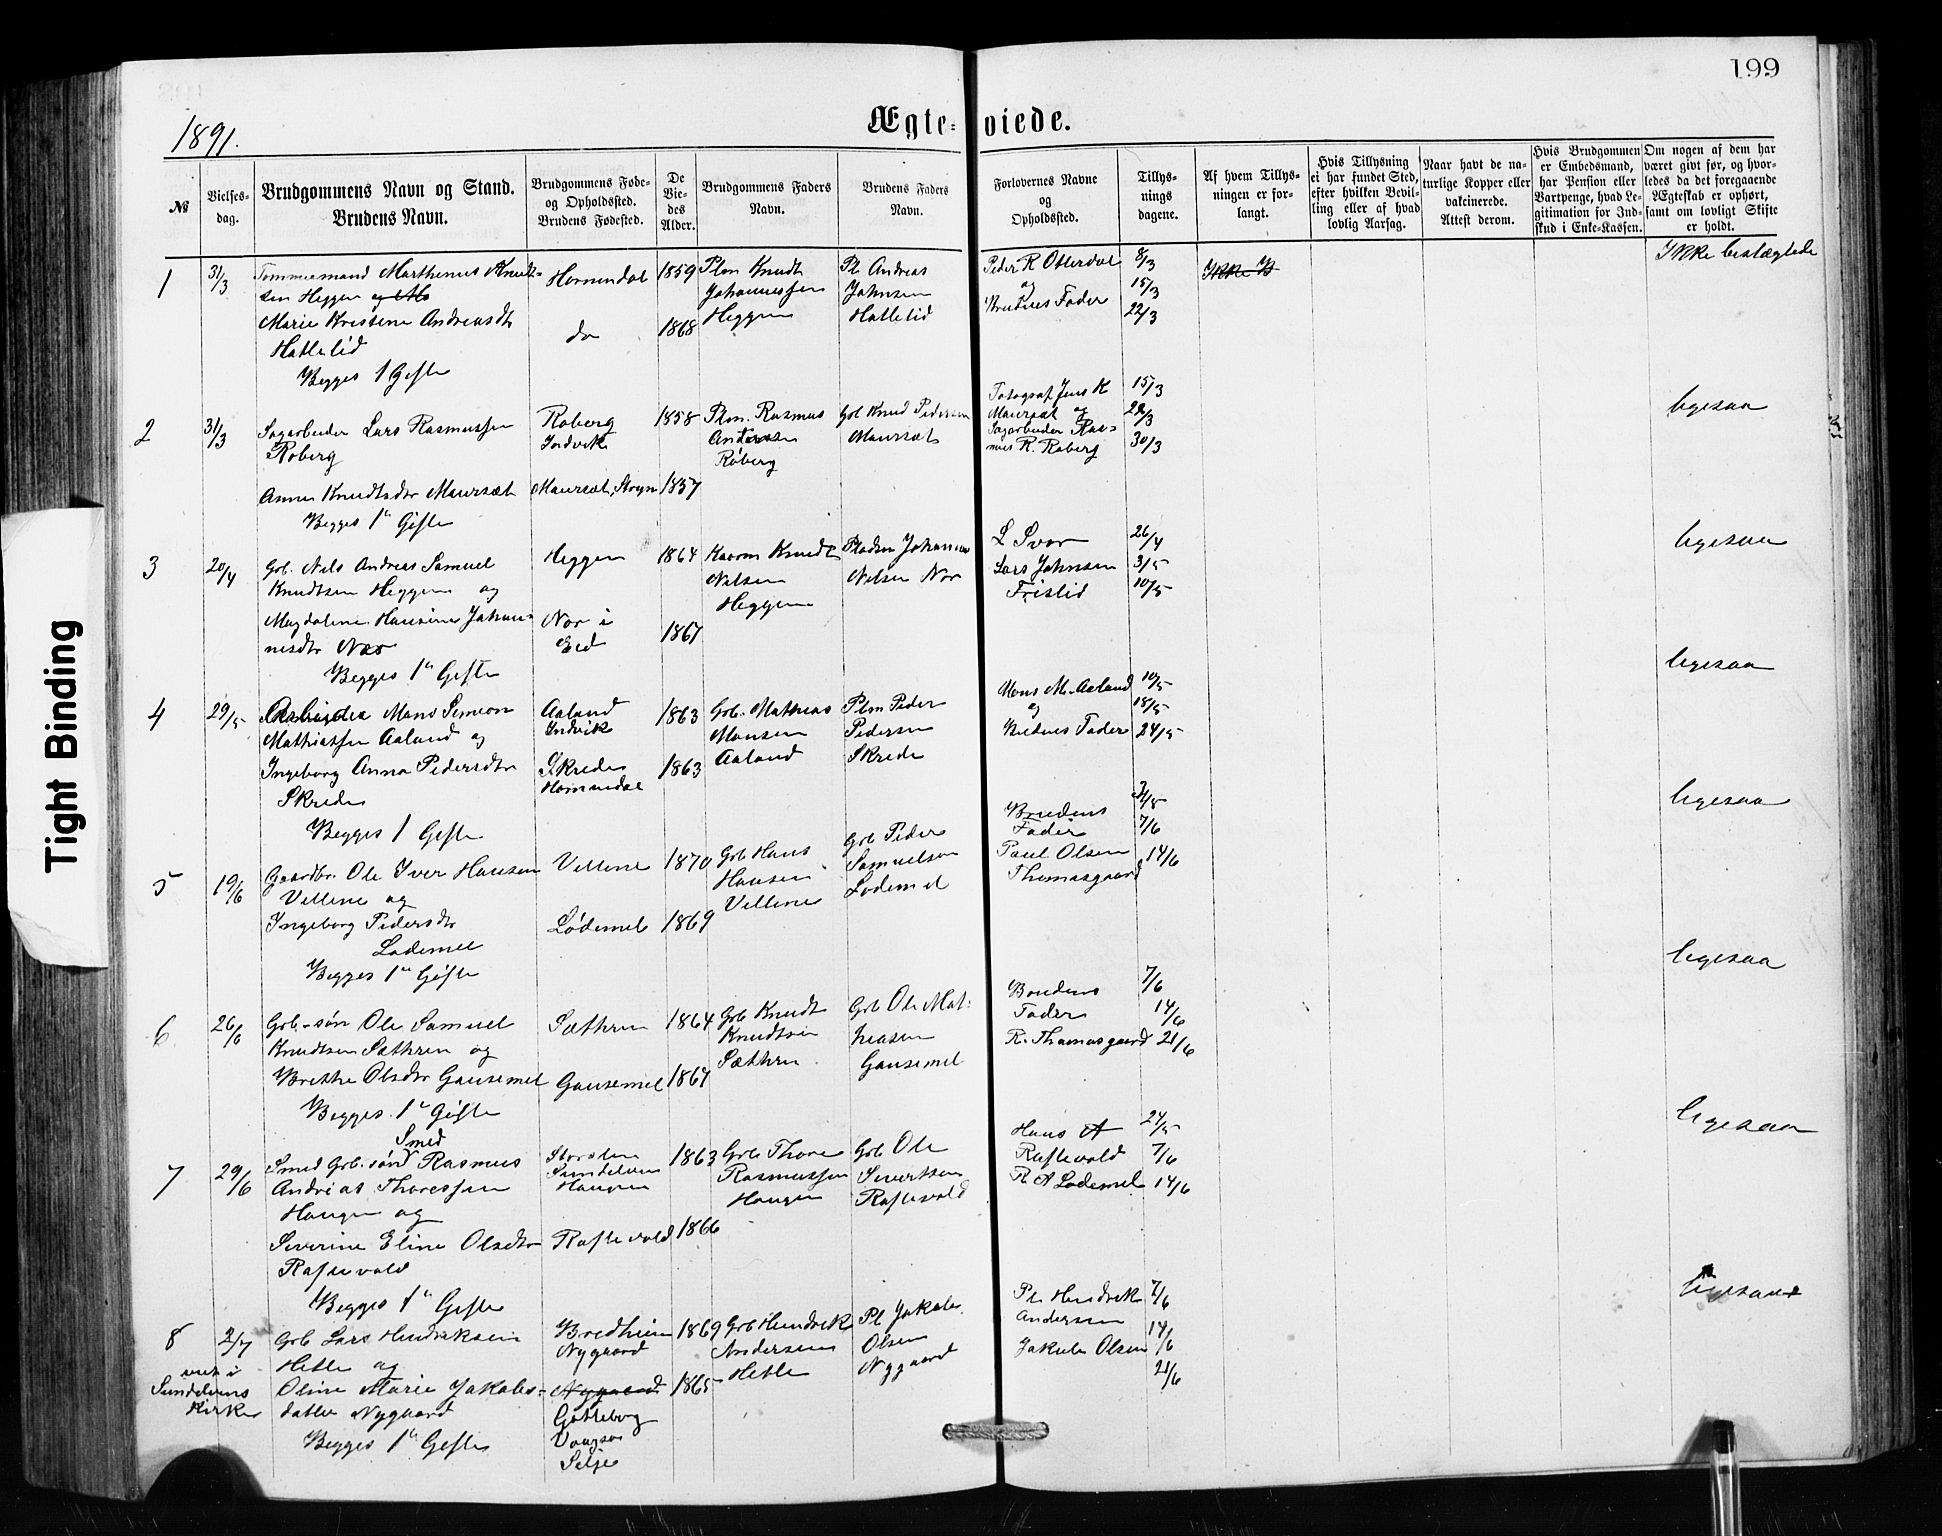 199
1891.
Ægte-viede.
№
Vielses-
dag.
Brudgommens Navn og Stand.
Brudens Navn.
Brudgommens Føde-
og Opholdssted.
Brudens Fødested.
De
Vie-
des
Alder.
Brudgommens Faders
Navn.
Brudens Faders
Navn.
Forlovernes Navne
og
Opholdssted.
Tillys-
nings
dagene.
Af hvem Tillys-
ningen er for-
langt.
Hvis Tillysning
ei har fundet Sted,
efter hvilken Bevil-
ling eller af hvad
lovlig Aarsag.
Naar havt de na-
turlige Kopper eller
vakcinerede.
Attest derom.
Hvis Brudgommen
er Embedsmand,
har Pension eller
Vartpenge, hvad Le-
gitimation for Ind-
skud i Enke-Kassen.
Om nogen af dem har
været givt før, og hvor-
ledes da det foregaaende
Ægteskab er ophørt,
samt om lovligt Skifte
er holdt.
1
31/3
Tømmermand Marthenus Knudt-
sen Heggen og
Marie Kristine Andreasdt
Hatlelid
Begges 1 Gifte
Hornindal
do
1859
1868
Plm Knudt
Johannessen
Heggen
Pl Andreas
Johnsen
Hatlelid
Peder R Otterdal
og
Brudens Fader
8/3
15/3
22/3
Ikke B
Ikke beslægtede
2
31/3
Sagarbeider Lars Rasmussen
Roberg
Anne Knudtsdtr Maursæt
Begges 1ste Gifte
Roberg
Indvik
Maursæt, Stryn
1858
1857
Plm. Rasmus
Andersen
Røberg
Grb Knud Pedersen
Maursæt
Fotograf Jens K
Maursæt og
Sagarbeider Ras-
mus R. Roberg
15/3
22/3
30/3
ligesaa
3
20/4
Grb. Nils Andreas Samuel
Knudtsen Heggen og
Magdalene Hansine Johan-
nesdtr Nor
Begges 1ste Gifte
Heggen
Nor i
Eid
1864
1867
Knudt
Nilsen
Heggen
Johannes
Nilsen Nor
L Svor
Lars Johnsen
Frislid
26/4
3/5
10/5
ligesaa
4
29/5
Mons Simeon
Mathiassen Aaland og
Ingeborg Anna Pedersdtr
Skrede
Begges 1 Gifte
Aaland
Indvik
Skrede
Hornindal
1863
1863
Grb. Mathias
Monsen
Aaland
Plm Peder
Pedersen
Skrede
Mons M. Aaland
og
Brudens Fader
10/5
18/5
24/5
ligesaa
5
19/6
Gaardbr. Ole Iver Hansen
Villene og
Ingeborg Pedersdtr
Lødemel
Begges 1ste Gifte
Villene
Lødemel
1870
1869
Grb Hans
Hansen
Villene
Grb Peder
Samuelsen
Lodemel
Brudens
Fader
Paul Olsen
Thomasgaard
31/5
7/6
14/6
ligesaa
6
26/6
Grb-søn Ole Samuel
Knudtsen Sæthren og
Brithe Olsdtr Gausemel
Begges 1ste Gifte
Sæthren
Gausemel
1864
1867
Grb Knudt
Knudtsen
Sæthren
Grb Ole Mat-
hiasen
Gausemel
Brudens
Fader
R. Thomasgaard
7/6
14/6
21/6
ligesaa
7
29/6
Smed
Smed Grb. søn Rasmus
Andreas Thoressen
Haugen og
Severine Eline Olsdtr
Raftevold
Begges 1ste Gifte
Storslen
Sundelven
Haugen
Raftevold
1863
1866
Grb Thore
Rasmussen
Haugen
Grb Ole
Sivertsen
Raftevold
Hans A
Raftevold
R A Lodemel
24/5
7/6
14/6
ligesaa
8
2/7
viet i
Sundelvens
Kirke
Grb Lars Hendriksen
Hitle og
Oline Marie Jakobs-
datter Nygaard
Begges 1ste Gifte
Bredheim
Nygaard
Nygaard
Gotteborg
Vaagsø
Selje
1869
1865
Grb Hendrik
Andersen
Hitle
Pl Jakob
Olsen
Nygaard
Pl Hendrik
Andersen
Jakob Olsen
7/6
14/6
21/6
ligesaa
Tight Binding